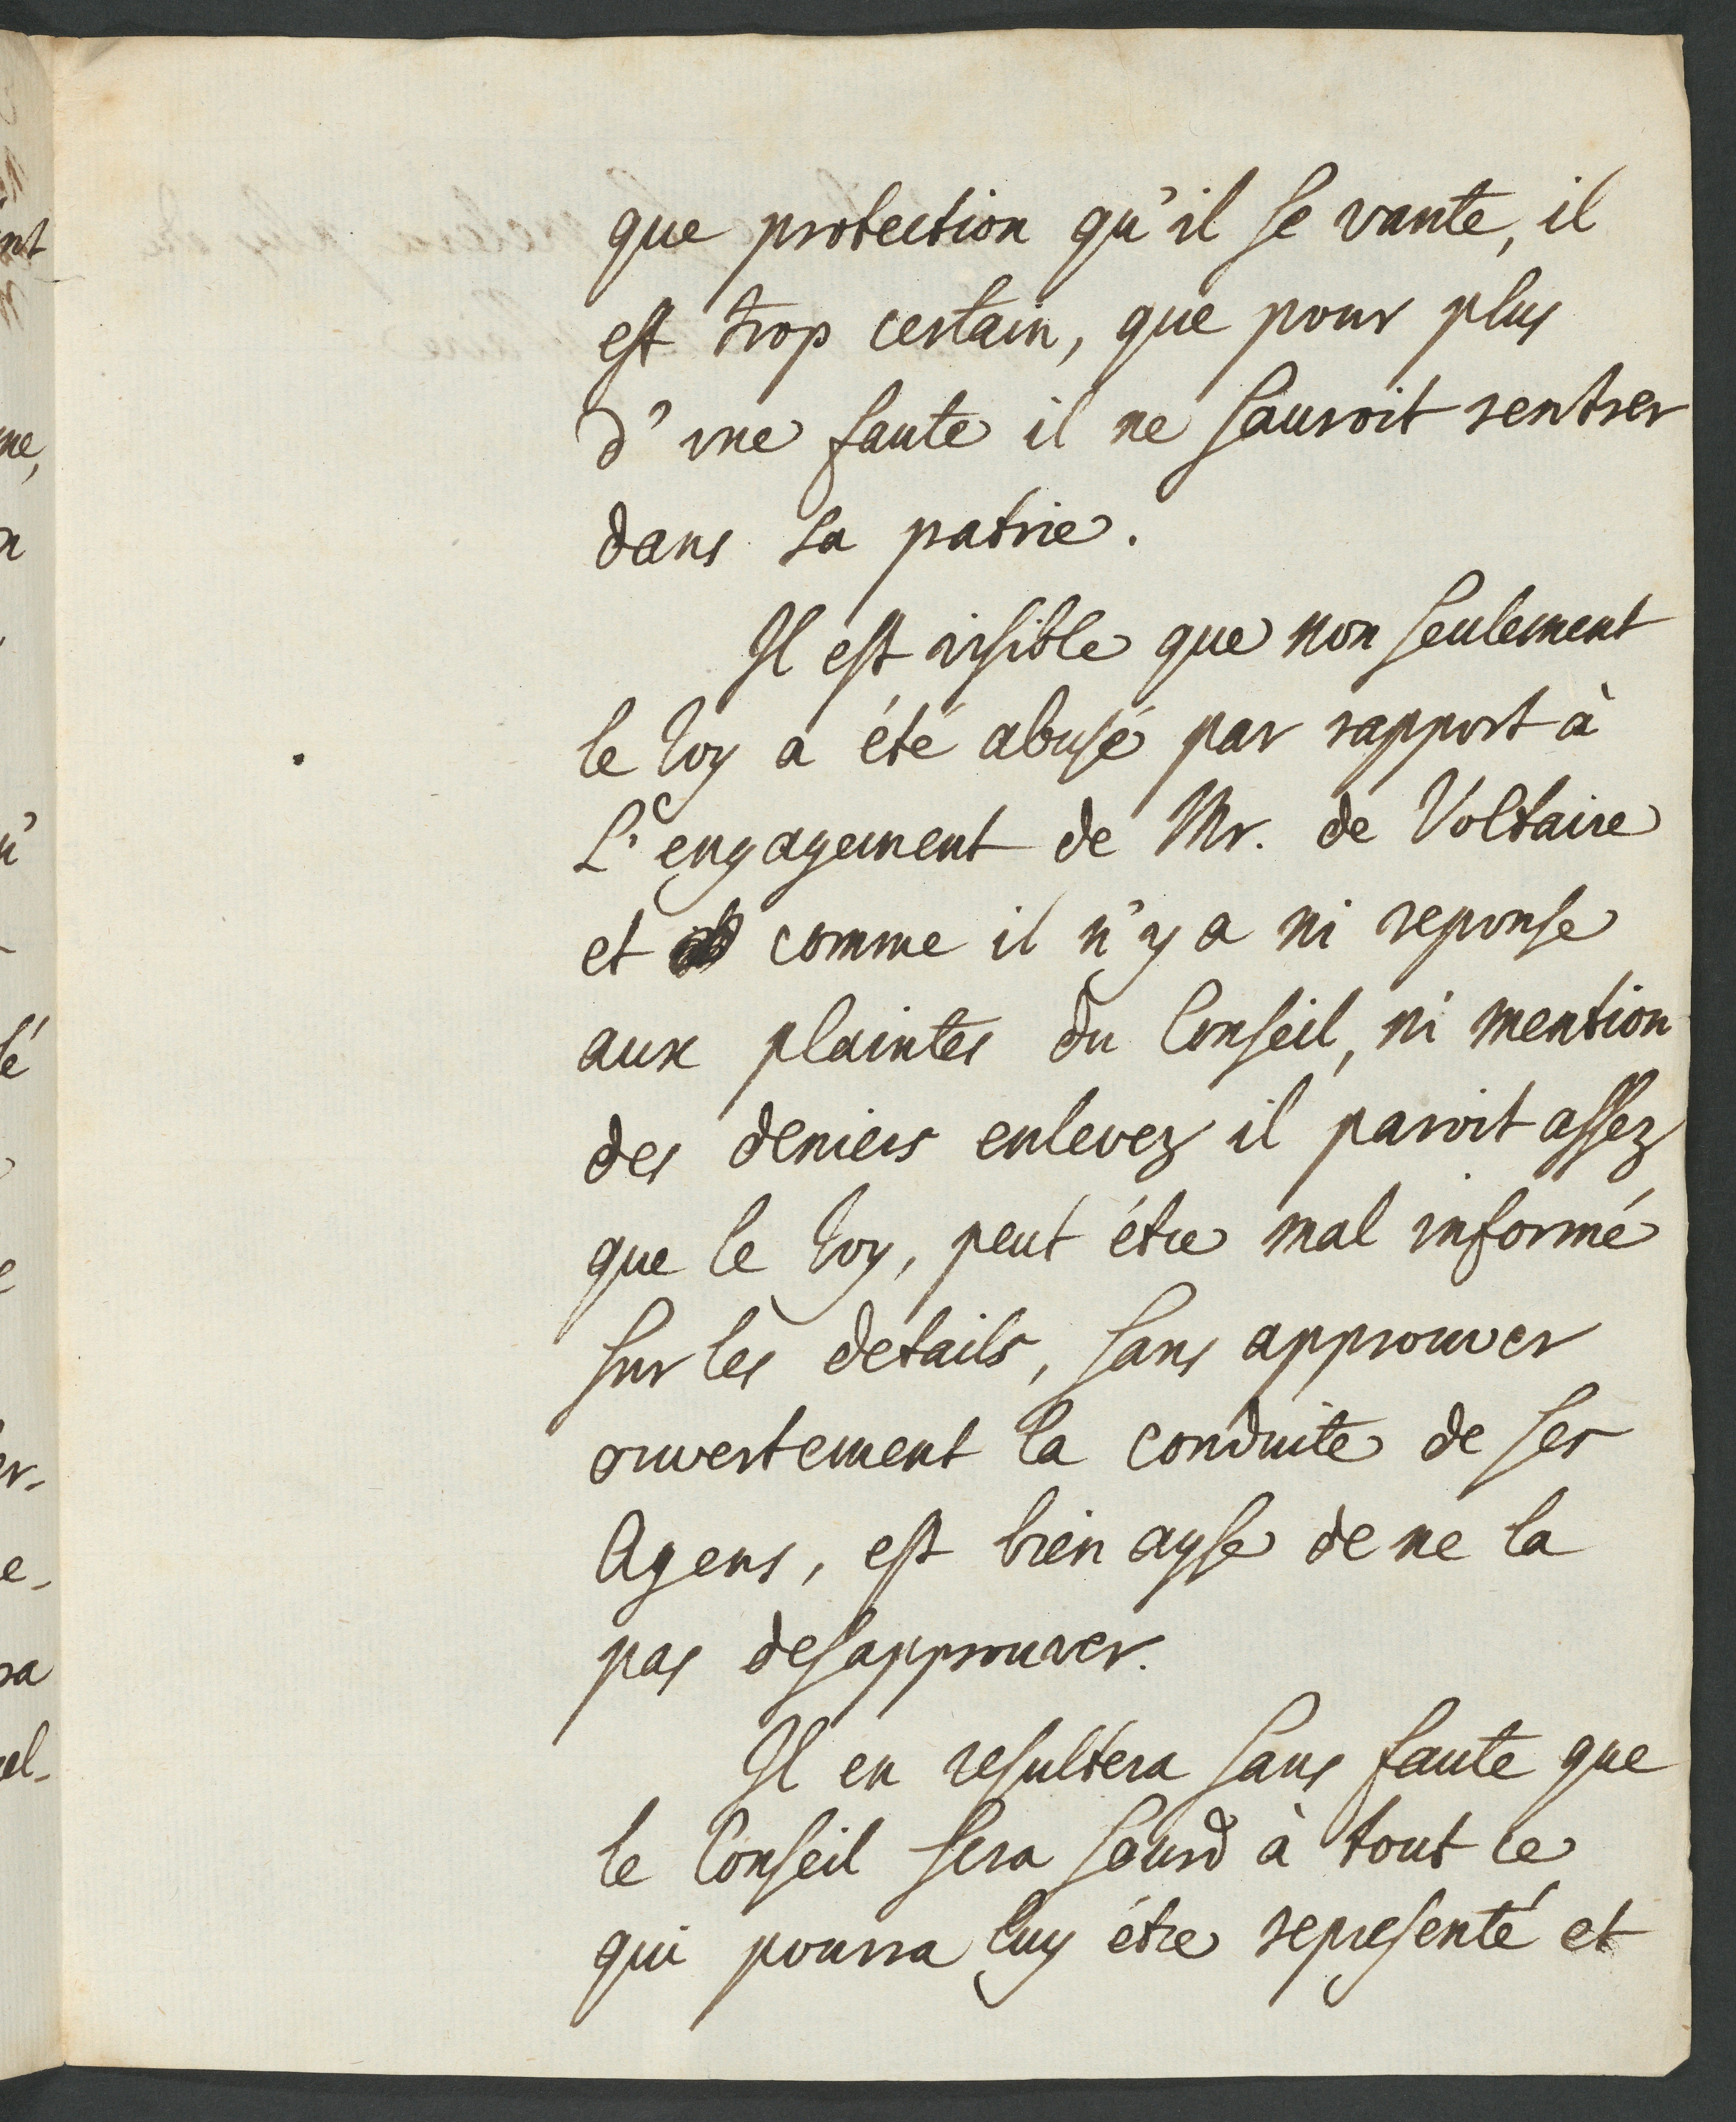 que protection qu'il se vante, il
est trop certain, que pour plus
d'une faute il ne sauroit rentrer
dans sa patrie.
Il est visible que non seulement
le Roy a été abusé par rapport à
L'engagement de Mr. de Voltaire
et comme il n'y a ni reponse
aux plaintes du Conseil, ni mention
des deniers enlevez il paroit assez
que le Roy, peut étre mal informé
sur les details, sans approuver
ouvertement la conduite de ses
Agens, est bien ayse de ne la
pas desapprouver.
Il en resultera sans faute que
le Conseil sera sourd à tout ce
qui pourra luy étre representé et